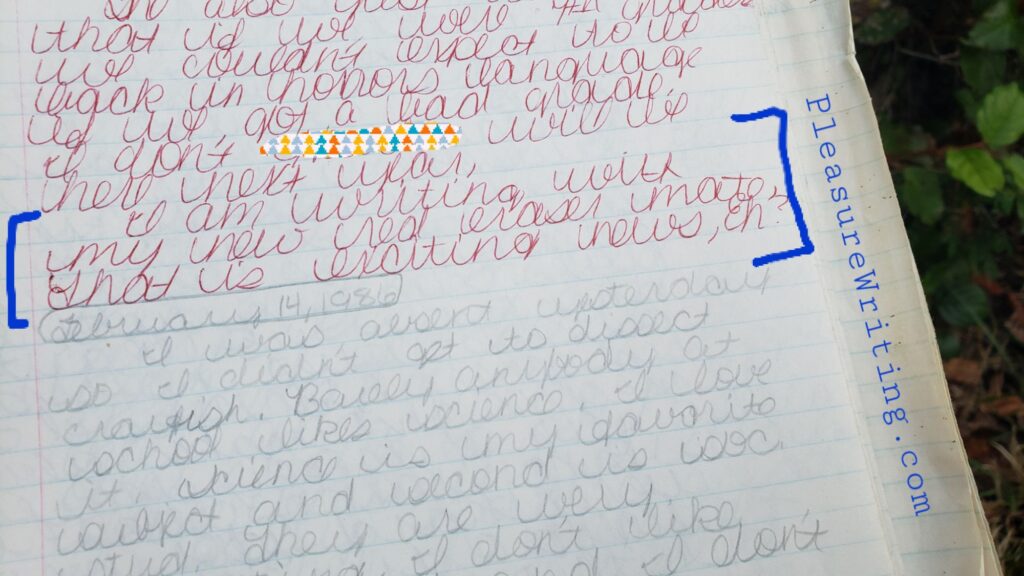 that if we were
we couldn't expect to be
back in honors language
if we got a bad grade.
I don't will be
here next year.
I am writing with
my new red eraser mate,
that is exciting news, eh?
February 14, 1986
I was absent yesterday
so I didn't get to dissect
crayfish. Barely anybody at
school likes science. I love
it. Science is my favorite
and second is soc.
stud. They are very
I don't like
and I don't
PleasureWriting.com